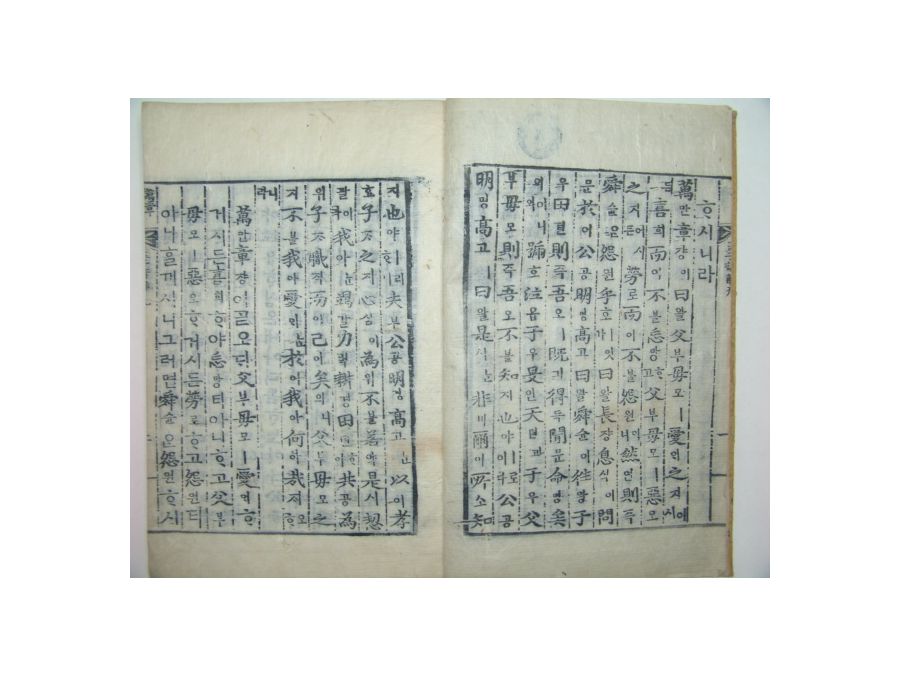 ᄒᆞ시니라
萬만章쟝이曰왈父부母모ㅣ愛ᄋᆡ之지어시
든喜희而이不블忘망ᄒᆞ고父부母모ㅣ惡오
之지어시든勞로而이不블怨원이니然연則즉
舜슌은怨원乎호ㅣ잇가曰왈長쟝息식이問
문於어公공明명高고曰왈舜슌이往왕于
우田뎐則즉吾오ㅣ旣긔得득聞문命명矣
의어니와號호泣읍于우旻민天텬과于우父
부母모則즉吾오不블知지也야ㅣ로이다公공
明명高고ㅣ曰왈是시ᄂᆞᆫ非비爾이所소知
지也야ㅣ라ᄒᆞ니夫부公공明명高고ᄂᆞᆫ以이孝
효子ᄌᆞ之지心심이爲위不블若약是시恝
괄이라我아ᄂᆞᆫ竭갈力력耕경田뎐ᄒᆞ야共공爲
위子ᄌᆞ職직而이已이矣의니父부母모之
지不블我아愛ᄋᆡᄂᆞᆫ於어我아何하哉ᄌᆡ오ᄒᆞ
니라
萬만章쟝이ᄀᆞᆯ오ᄃᆡ父부母모ㅣ愛ᄋᆡᄒᆞ
거시든喜희ᄒᆞ야忘망티아니ᄒᆞ고父부
母모ㅣ惡오ᄒᆞ거시든勞로ᄒᆞ고怨원티
아니ᄒᆞᆯ께시니그러면舜슌은怨원ᄒᆞ시